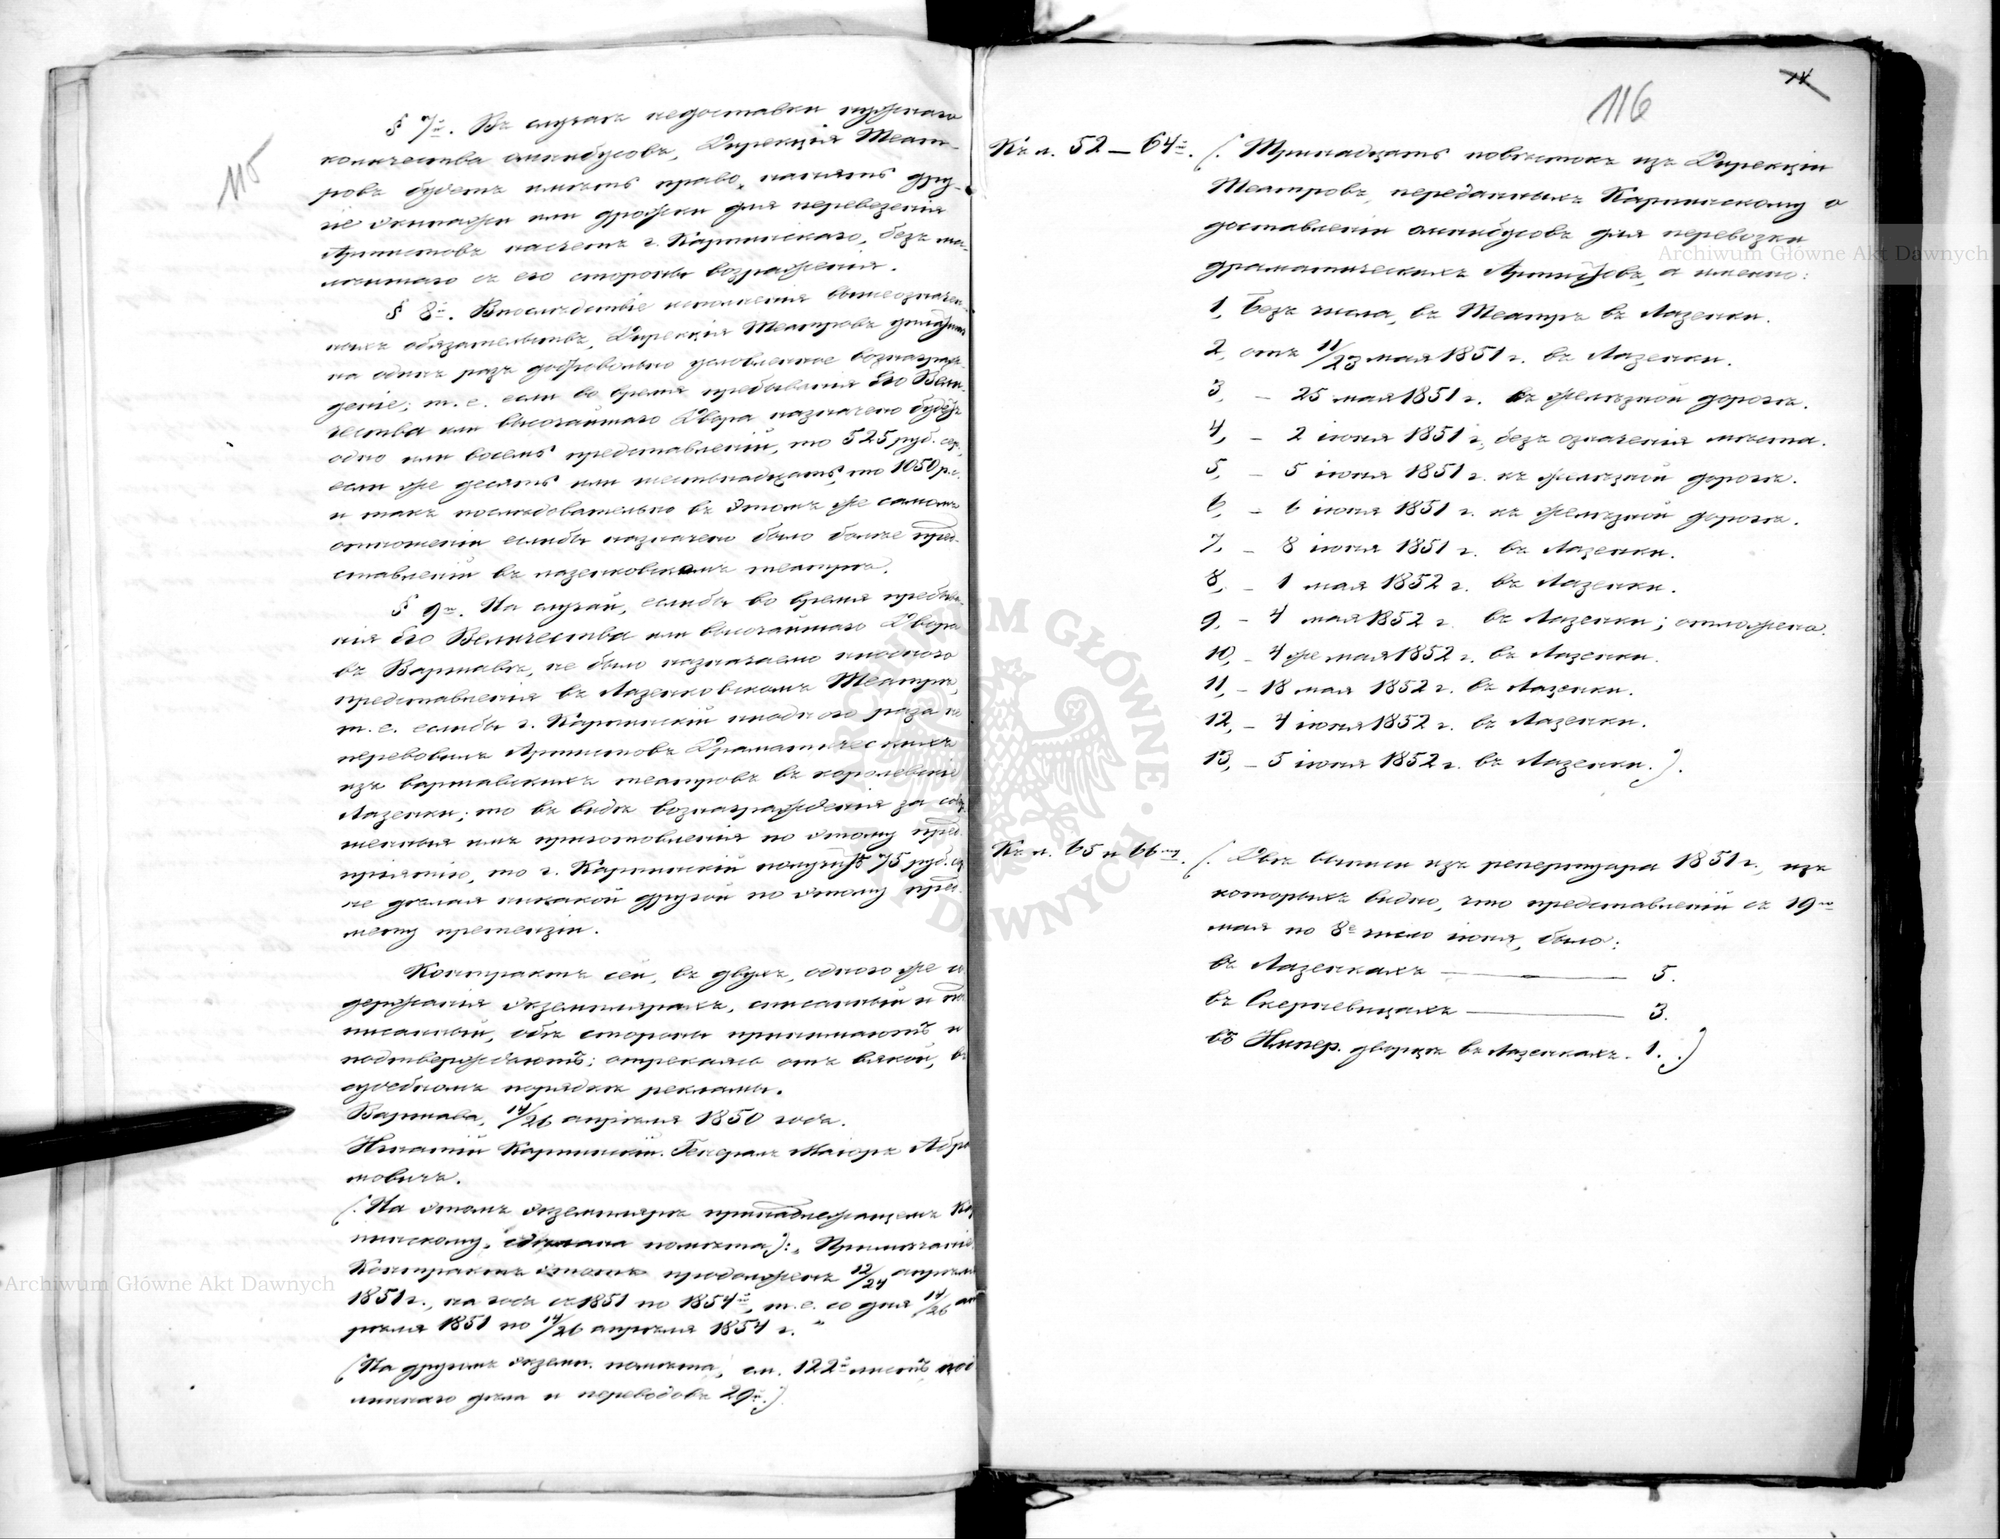 115
§ 7й. Въ случаѣ недоставки нужнаго
количества омнибусовъ, Дирекція Теат-
ровъ будетъ имѣть право, нанять дру-
гіе экипажи или дрожки для перевезенія
Артистовъ насчетъ г. Карпинскаго, безъ ма-
лѣйшаго съ его стороны возраженія.
§ 8й. Впослѣдствіе исполненія вышеозначен-
ныхъ обязательствъ, Дирекція Театровъ
на одинъ разъ добровольно условленное вознаграж-
деніе; т. е. если во время пребыванія Его Вели-
чества или Высочайшаго Двора назначено будетъ
одно или восемь представленій, то 525 руб. сер.,
если же десять или шестьнадцать, то 1050 р.с.
и такъ послѣдовательно въ этомъ же самомъ
отношеніи еслибы назначено было болѣе пред-
ставленій въ лазенковскомъ театрѣ.
§ 9й. На случай, еслибы во время пребыва-
нія Его Величества или Высочайшаго Двора
въ Варшавѣ, не было назначаемо ниодного
представленія въ Лазенковскомъ Театрѣ,
т. е. еслибы г. Карпинскій ниодного раза не
перевозилъ Артистовъ Драматическихъ
изъ варшавскихъ театровъ въ королевскіе
Лазенки; то въ видѣ вознагражденія за
имъ приготовленія по этому пред-
пріятію, то г. Карпинскій получитъ 75 руб. с.
не дѣлая никакой другой по этому пред-
мету претензіи.
Контрактъ сей, въ двухъ, одного же со-
держанія экземплярахъ, списанный и под-
писанный, обѣ стороны принимаютъ и
подтверждаютъ; отрекаясь отъ всякой, въ
судебномъ порядкѣ рекламы.
Варшава, 14/26 апрѣля 1850 года.
Игнатій Карпинскій. Генералъ Маіоръ Абра-
мовичъ.
(. На этомъ экземплярѣ принадлежащемъ Кар-
пинскому, сдѣлана помѣта): „Примѣчаніе.
Контрактъ этотъ продолженъ 12/24 апрѣля
1851 г., на годъ съ 1851 по 1854й, т. е. со дня 14/26 ап-
рѣля 1851 по 14/26 апрѣля 1854 г. “
(На другомъ экземп. помѣта, см. 122й листъ,
дѣла и переводовъ 29й.)
116
Къ л. 52 – 64й. (. Тринадцать повѣстокъ изъ Дирекціи
Театровъ, переданныхъ Карпинскому о
доставленіи омнибусовъ для перевозки
драматическихъ Артистовъ, а именно:
1, Безъ числа, въ Театръ въ Лазенки.
2, отъ 11/23 мая 1851 г. въ Лазенки.
3, – 25 мая 1851 г. къ желѣзной дорогѣ.
4, – 2 іюня 1851 г., безъ означенія мѣста.
5, – 5 іюня 1851 г. къ желѣзной дорогѣ.
6, – 6 іюня 1851 г. къ желѣзной дорогѣ.
7, – 8 іюня 1851 г. въ Лазенки.
8, – 1 мая 1852 г. въ Лазенки.
9, – 4 мая 1852 г. въ Лазенки; отложено.
10, – 4 же мая 1852 г. въ Лазенки.
11, – 18 мая 1852 г. въ Лазенки.
12, – 4 іюня 1852 г. въ Лазенки.
13, – 5 іюня 1852 г. въ Лазенки.).
Къ л. 65 и 66му. (. Двѣ выписи изъ репертуара 1851 г., изъ
которыхъ видно, что представленій съ 19го
мая по 8е число іюня, было:
въ Лазенкахъ — 5.
въ Скерневицахъ — 3.
въ Импер. дворцѣ въ Лазенкахъ. 1. .)
Archiwum Główne Akt Dawnych
Archiwum Główne Akt Dawnych
ARCHIWUM GŁÓWNE AKT DAWNYCH